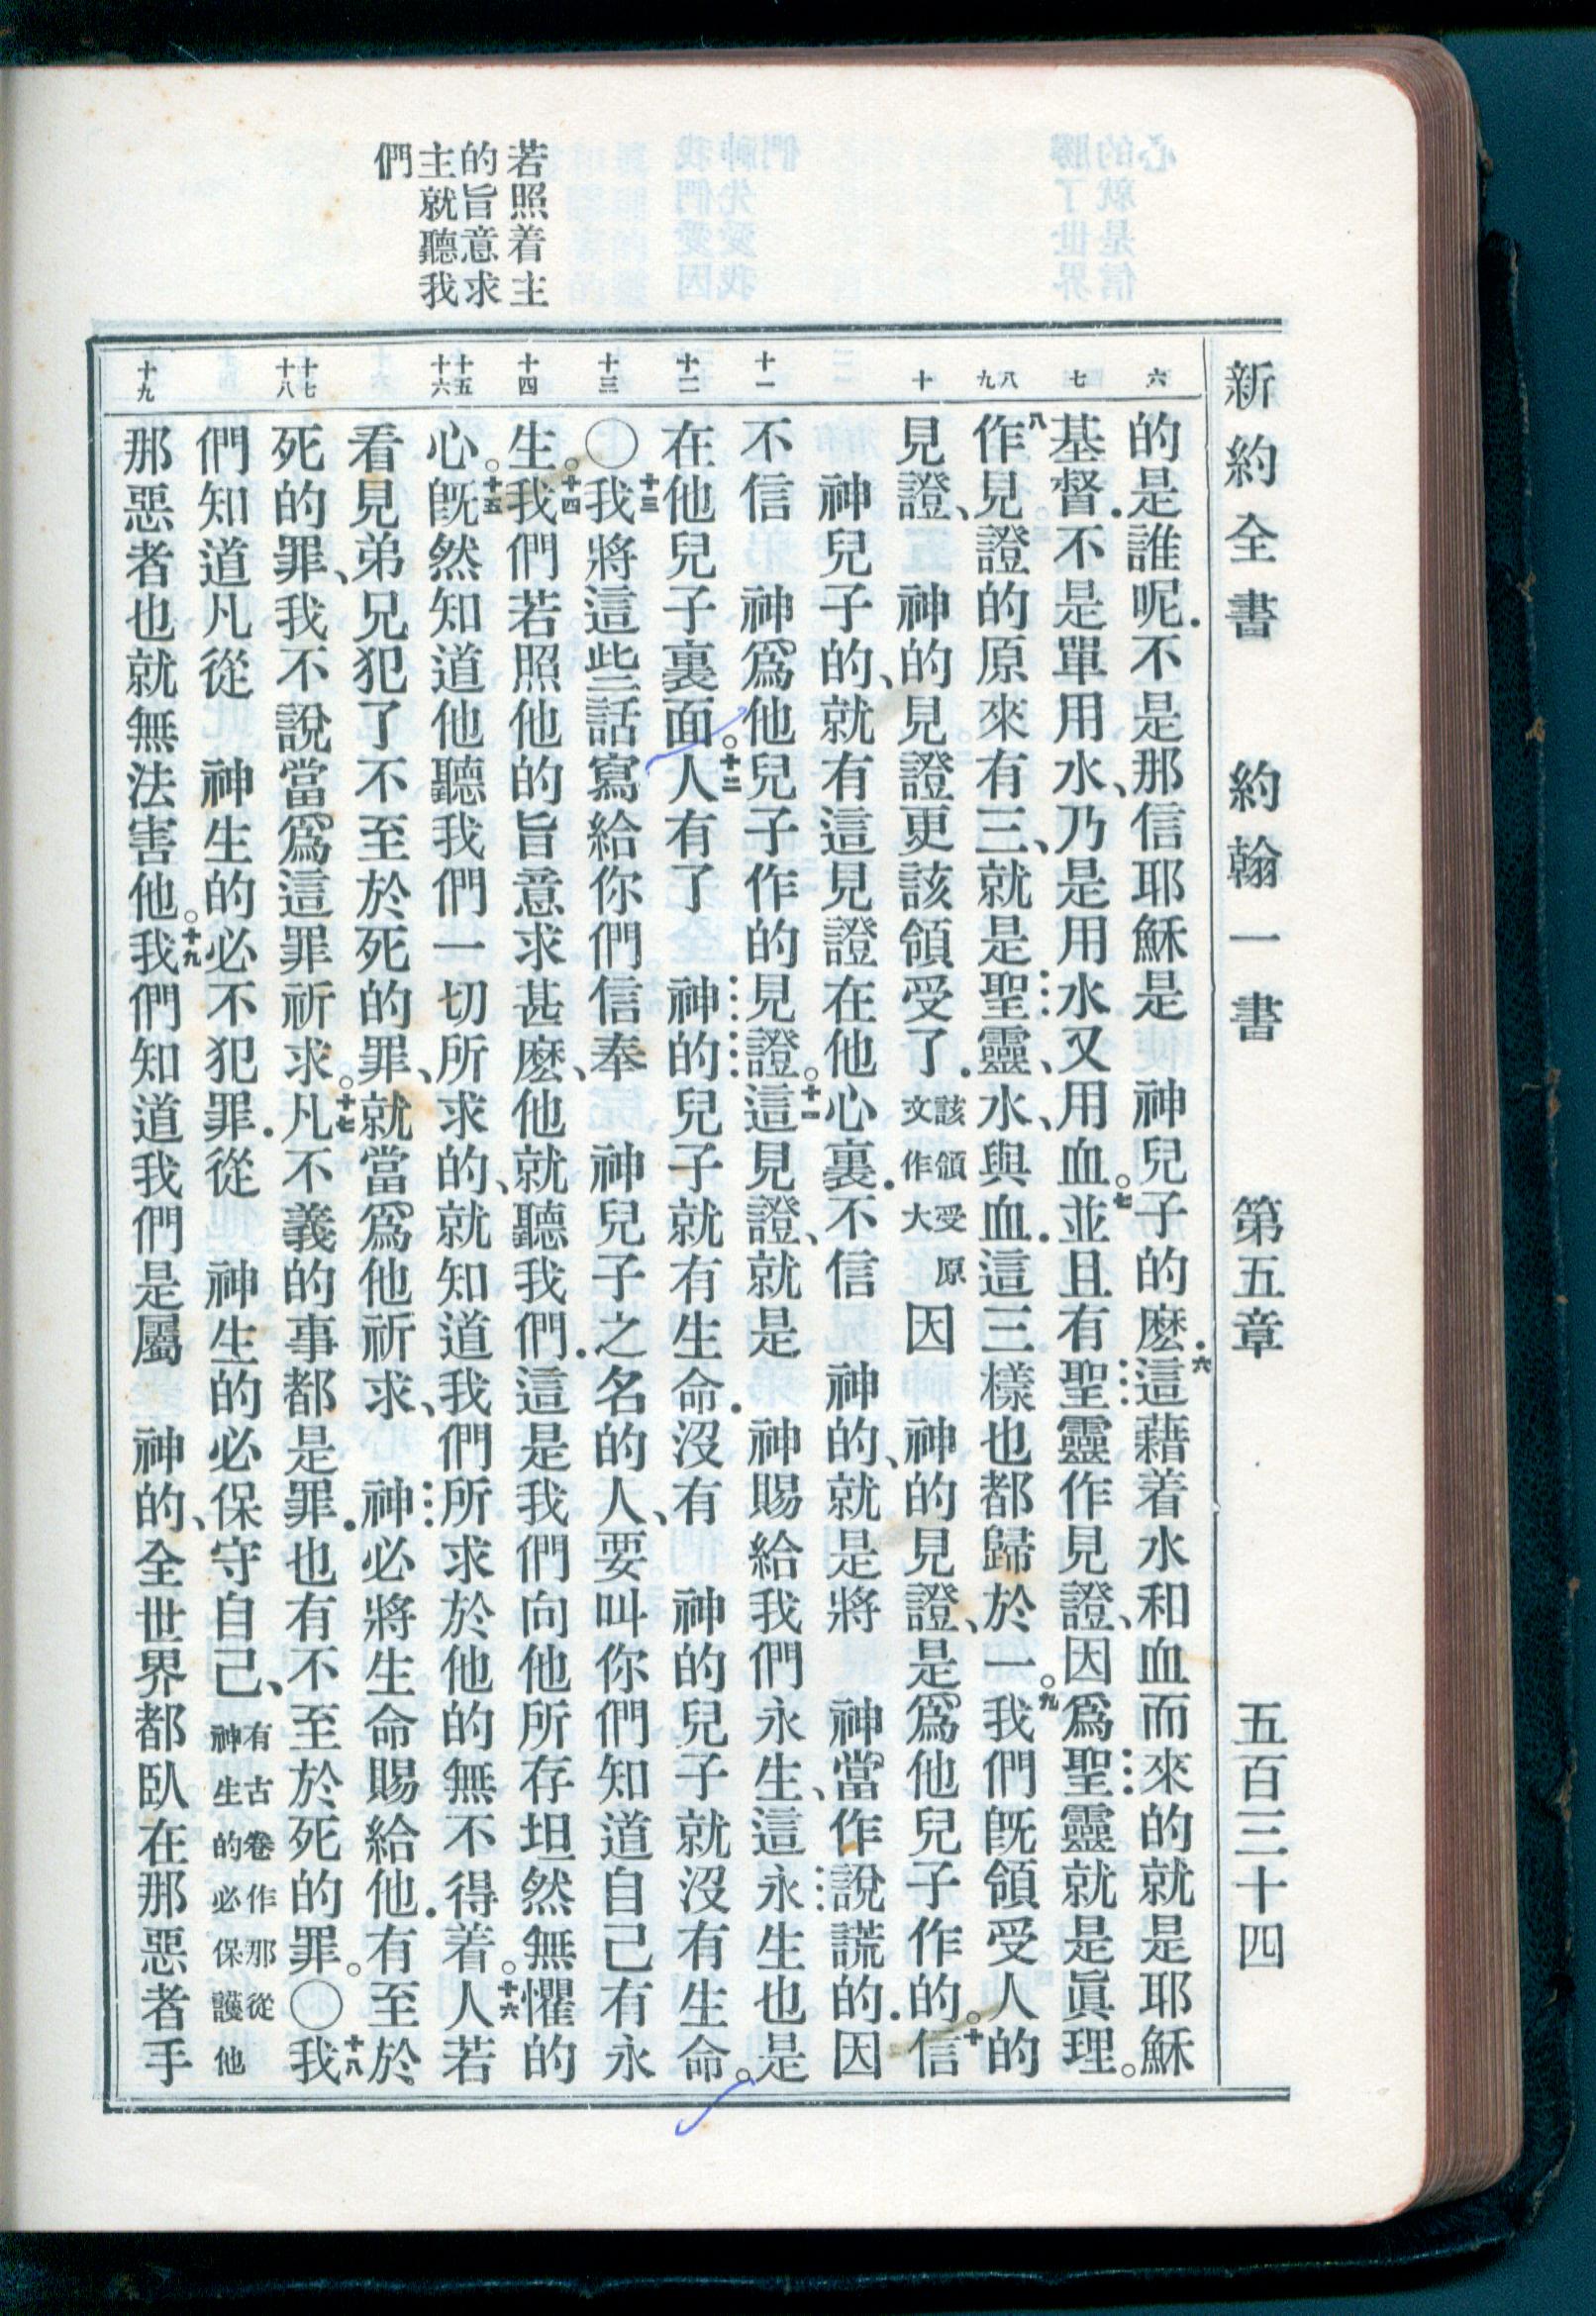 新約全書 約翰一書 第五章 五百三十四
若照着主
的旨意求
主就聽我
們
六 七 八 九 十 十一 十二 十三 十四 十五 十六 十七 十八 十九
的是誰呢．不是那信耶穌是 神兒子的麽．六這藉着水和血而來的就是耶穌
基督．不是單用水、乃是用水又用血。七並且有聖靈作見證、因爲聖靈就是眞理。
八作見證的原來有三、就是聖靈、水、與血．這三樣也都歸於一。九我們既領受人的
見證、 神的見證更該領受了．該領受原文作大因 神的見證、是爲他兒子作的。十信
 神兒子的、就有這見證在他心裏．不信 神的、就是將 神當作說謊的．因
不信 神爲他兒子作的見證。十一這見證、就是 神賜給我們永生、這永生也是
在他兒子裏面。十二人有了 神的兒子就有生命．沒有 神的兒子就沒有生命。
〇十三我將這些話寫給你們信奉 神兒子之名的人、要叫你們知道自己有永
生。十四我們若照他的旨意求甚麽、他就聽我們．這是我們向他所存坦然無懼的
心。十五既然知道他聽我們一切所求的、就知道我們所求於他的無不得着。十六人若
看見弟兄犯了不至於死的罪、就當爲他祈求、 神必將生命賜給他．有至於
死的罪、我不說當爲這罪祈求。十七凡不義的事都是罪．也有不至於死的罪。〇十八我
們知道凡從 神生的必不犯罪．從 神生的必保守自己、有古卷作那從神生的必保護他
那惡者也就無法害他。十九我們知道我們是屬 神的、全世界都臥在那惡者手